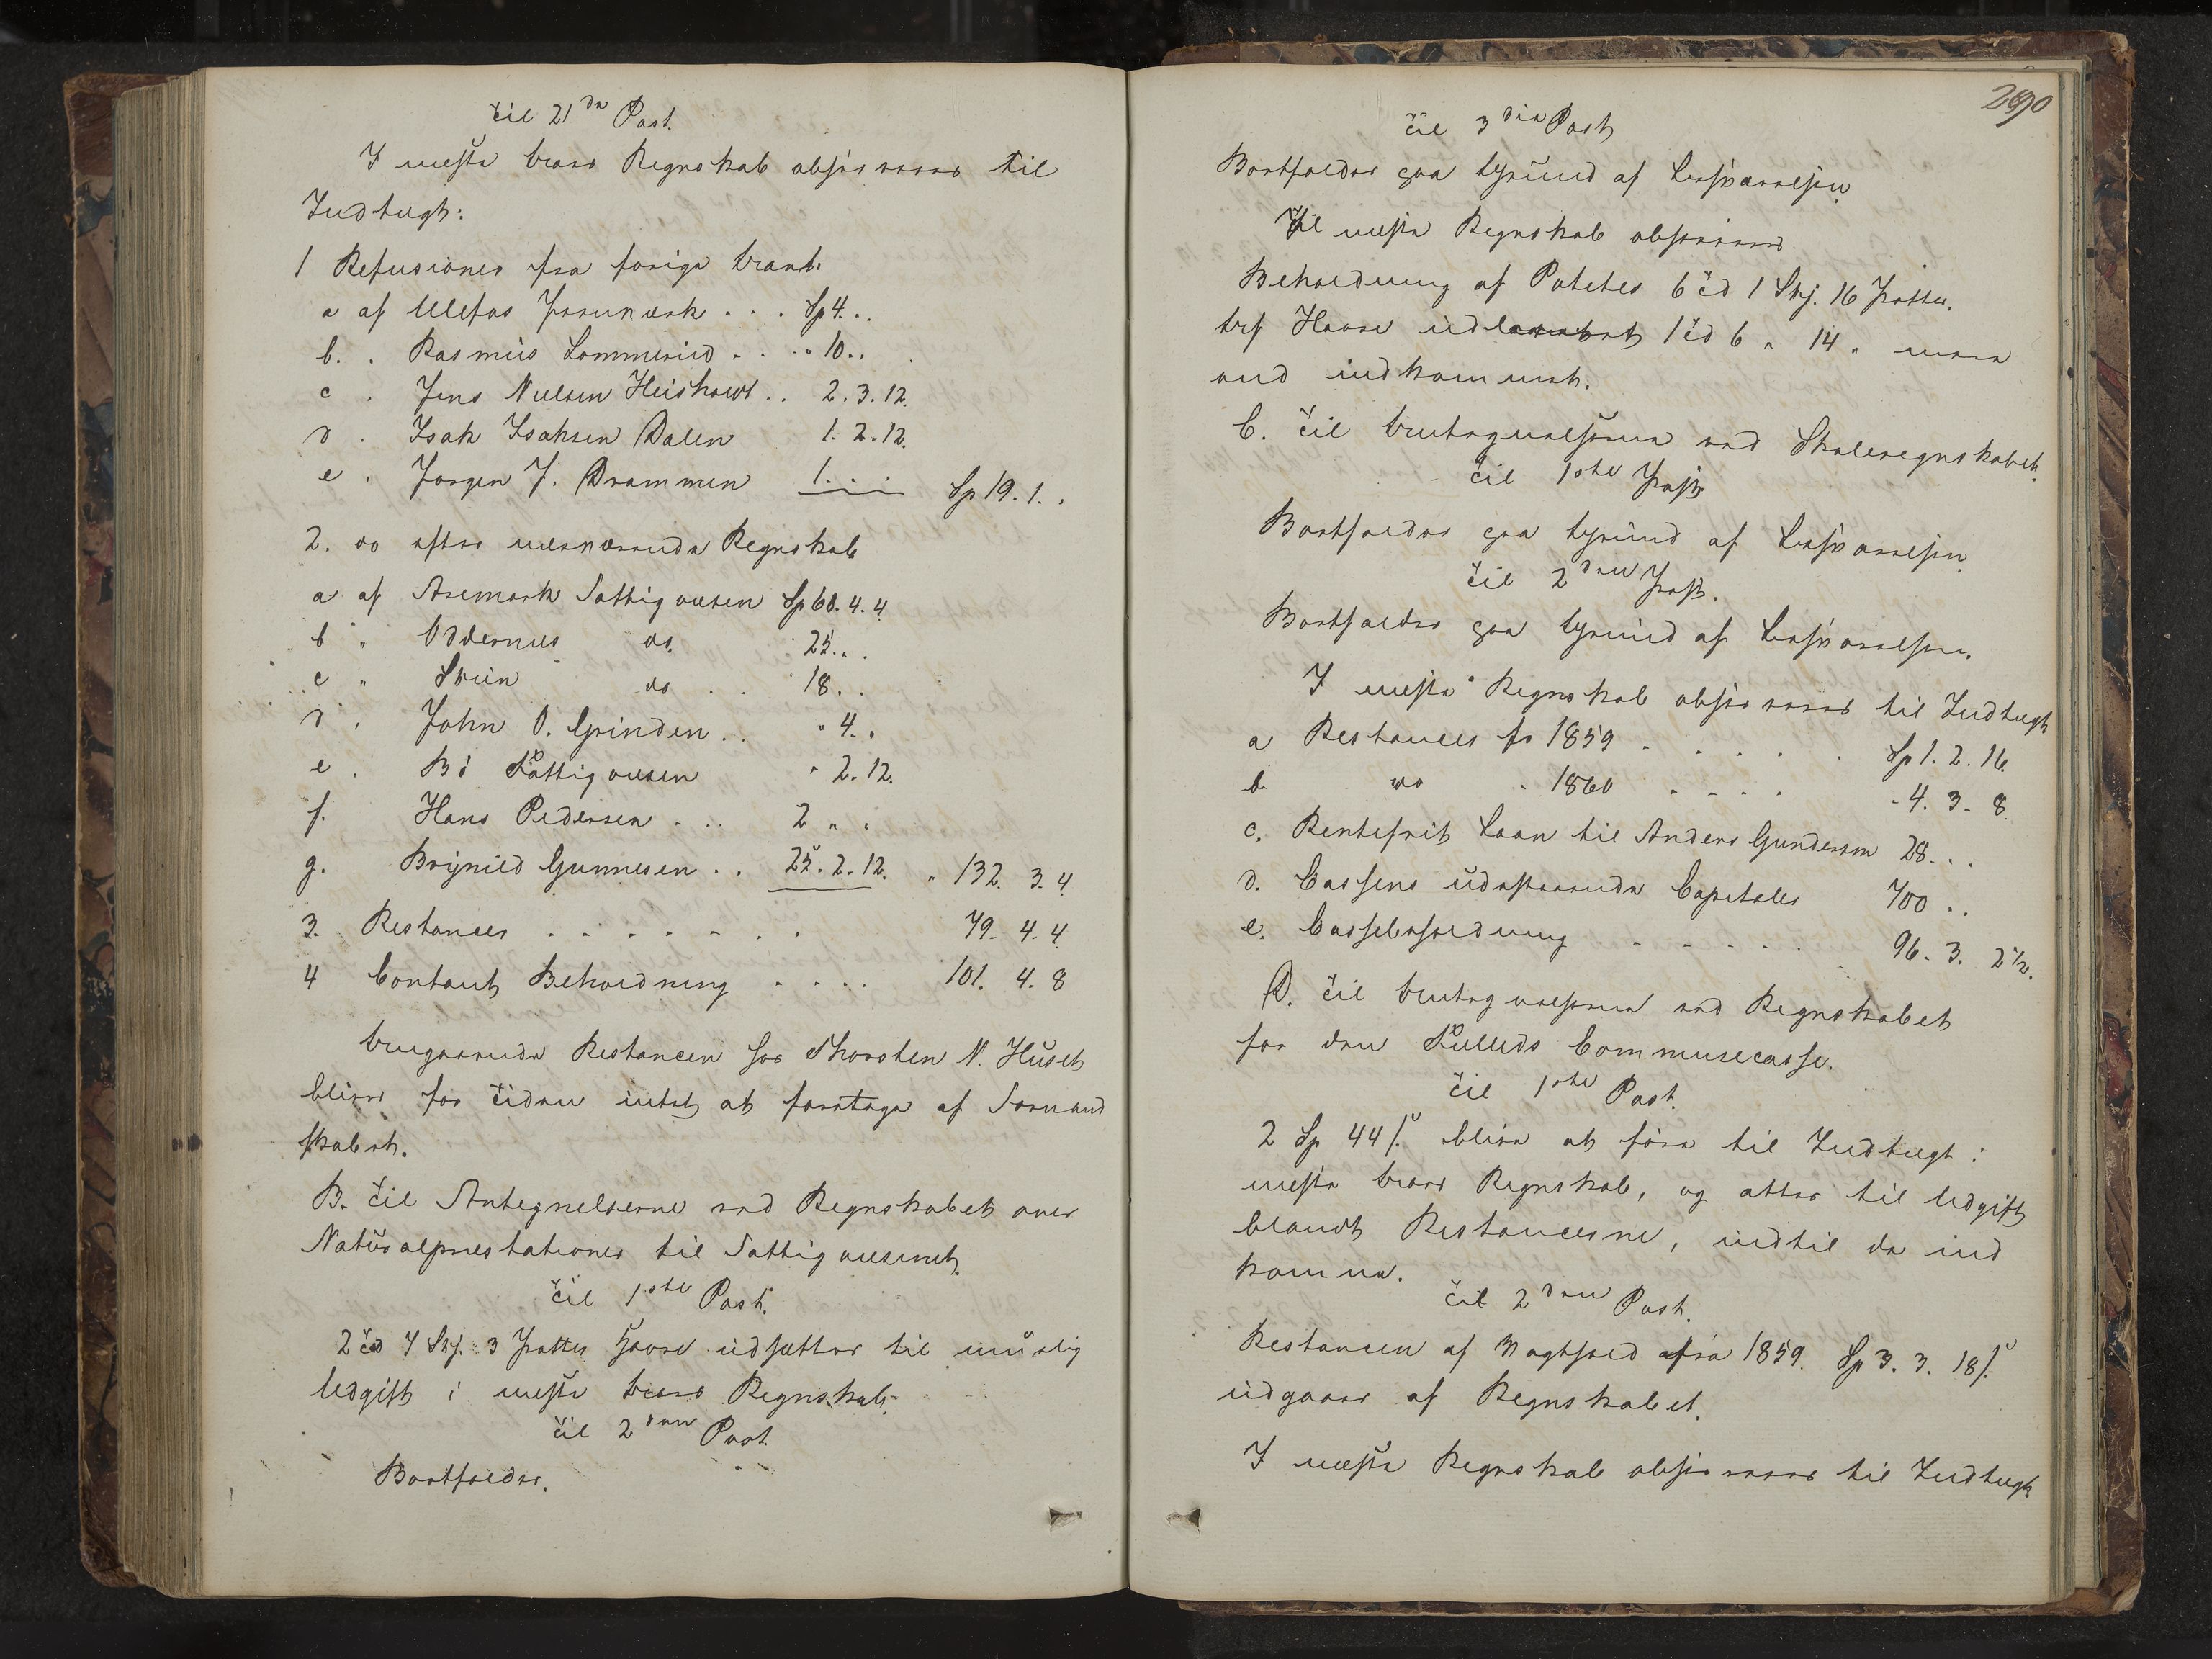 Til 21de Post.
I næste Aars Regnskab observeres til
Indtægt:
1 Refusioner fra forige Aar:
a af Ulefos Jernværk . . . Sp 4. . .
b. . Rasmus Lommerud . . . " 10. .
c . Jens Nielsen Heisholt . . 2. 3. 12.
d . Isak Isaksen Dalen 1. 2. 12.
e . Jørgen J. Drammen 1. . . Sp 19. 1. .
2. do efter nærværende Regnskab
a af Aremark Fattigvæsen Sp 60. 4. 4.
b " Oddernes do. 25. . .
c " Skien do . . 18. . .
d . John O. Grinden . . " 4. "
e . Bö Fattigvæsen " 2. 12.
f. Hans Pedersen . . . 2 " "
g. Brynild Gunnesen . . 25. 2. 12. " 132. 3. 4.
3. Restancer . . . . . . . 79. 4. 4.
4 Contant Beholdning . . . . 101. 4. 8
Angaaende Restancen hos Thorsten N. Huset
bliver for Tiden intet at foretage af Formand
skabet.
B. Til Antegnelserne ved Regnskabet over
Naturalpræstationer til Fattigvæsenet.
Til 1ste Post.
2 Td 7 Skj. 3 Potter Havre udsættes til muelig
Udgift i næste Aars Regnskab.
Til 2den Post.
Bortfalder.
290
Til 3die Post
Bortfalder paa Grund af Besvarelsen.
Til næste Regnskab observeres
Beholdning af Poteter 6 Td 1 Skj. 16 Potter.
Havre 1 Td 6 " 14 "
indkommet.
C. Til Antegnelserne ved Skoleregnskabet.
Til 1ste Post
Bortfalder paa Grund af Besvarelsen.
Til 2den Post.
Bortfalder paa Grund af Besvarelsen.
I næste Regnskab observeres til Indtægt
a Restancer fr 1859 . . . . . Sp 1. 2. 16.
b. do . 1860 . . . . " 4. 3. 8.
c. Rentefrit Laan til Anders Gundersen 28. . .
d. Cassens udestaaende Capitaler 700 . .
e. Cassebeholdning . . . . . 96. 3. 2 1/2.
D. Til Antegnelserne ved Regnskabet
for den Communecasse.
Til 1ste Post.
2 Sp 44 ß. blive at føre til Indtægt i
næste Aars Regnskab, og atter til Udgift
blandt Restancerne, indtil de ind
komme.
Til 2den Post.
Restancen af Magthold fra 1859. Sp 3. 3. 18 ß.
udgaaer af Regnskabet.
I næste Regnskab observeres til Indtægt